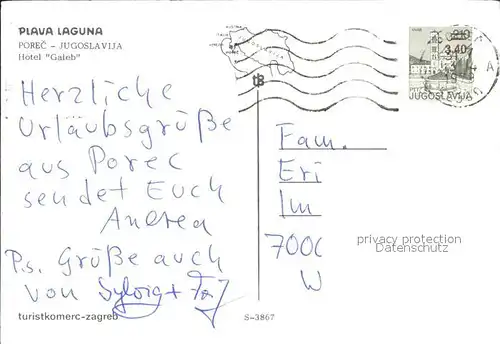 PLAVA LAGUNA
POREČ - JUGOSLAVIJA
Hotel "Galeb"
2.10
3.40
JUGOSLAVIJA
Herzliche
Urläubsgrüße
aus Porec
sendet Euch
Andrea
P.s. Grüße auch
von Sylvia +
Fam.
Eri
Im
7000
W
privacy protection
Datenschutz
turistkomerc-zagreb
S-3867